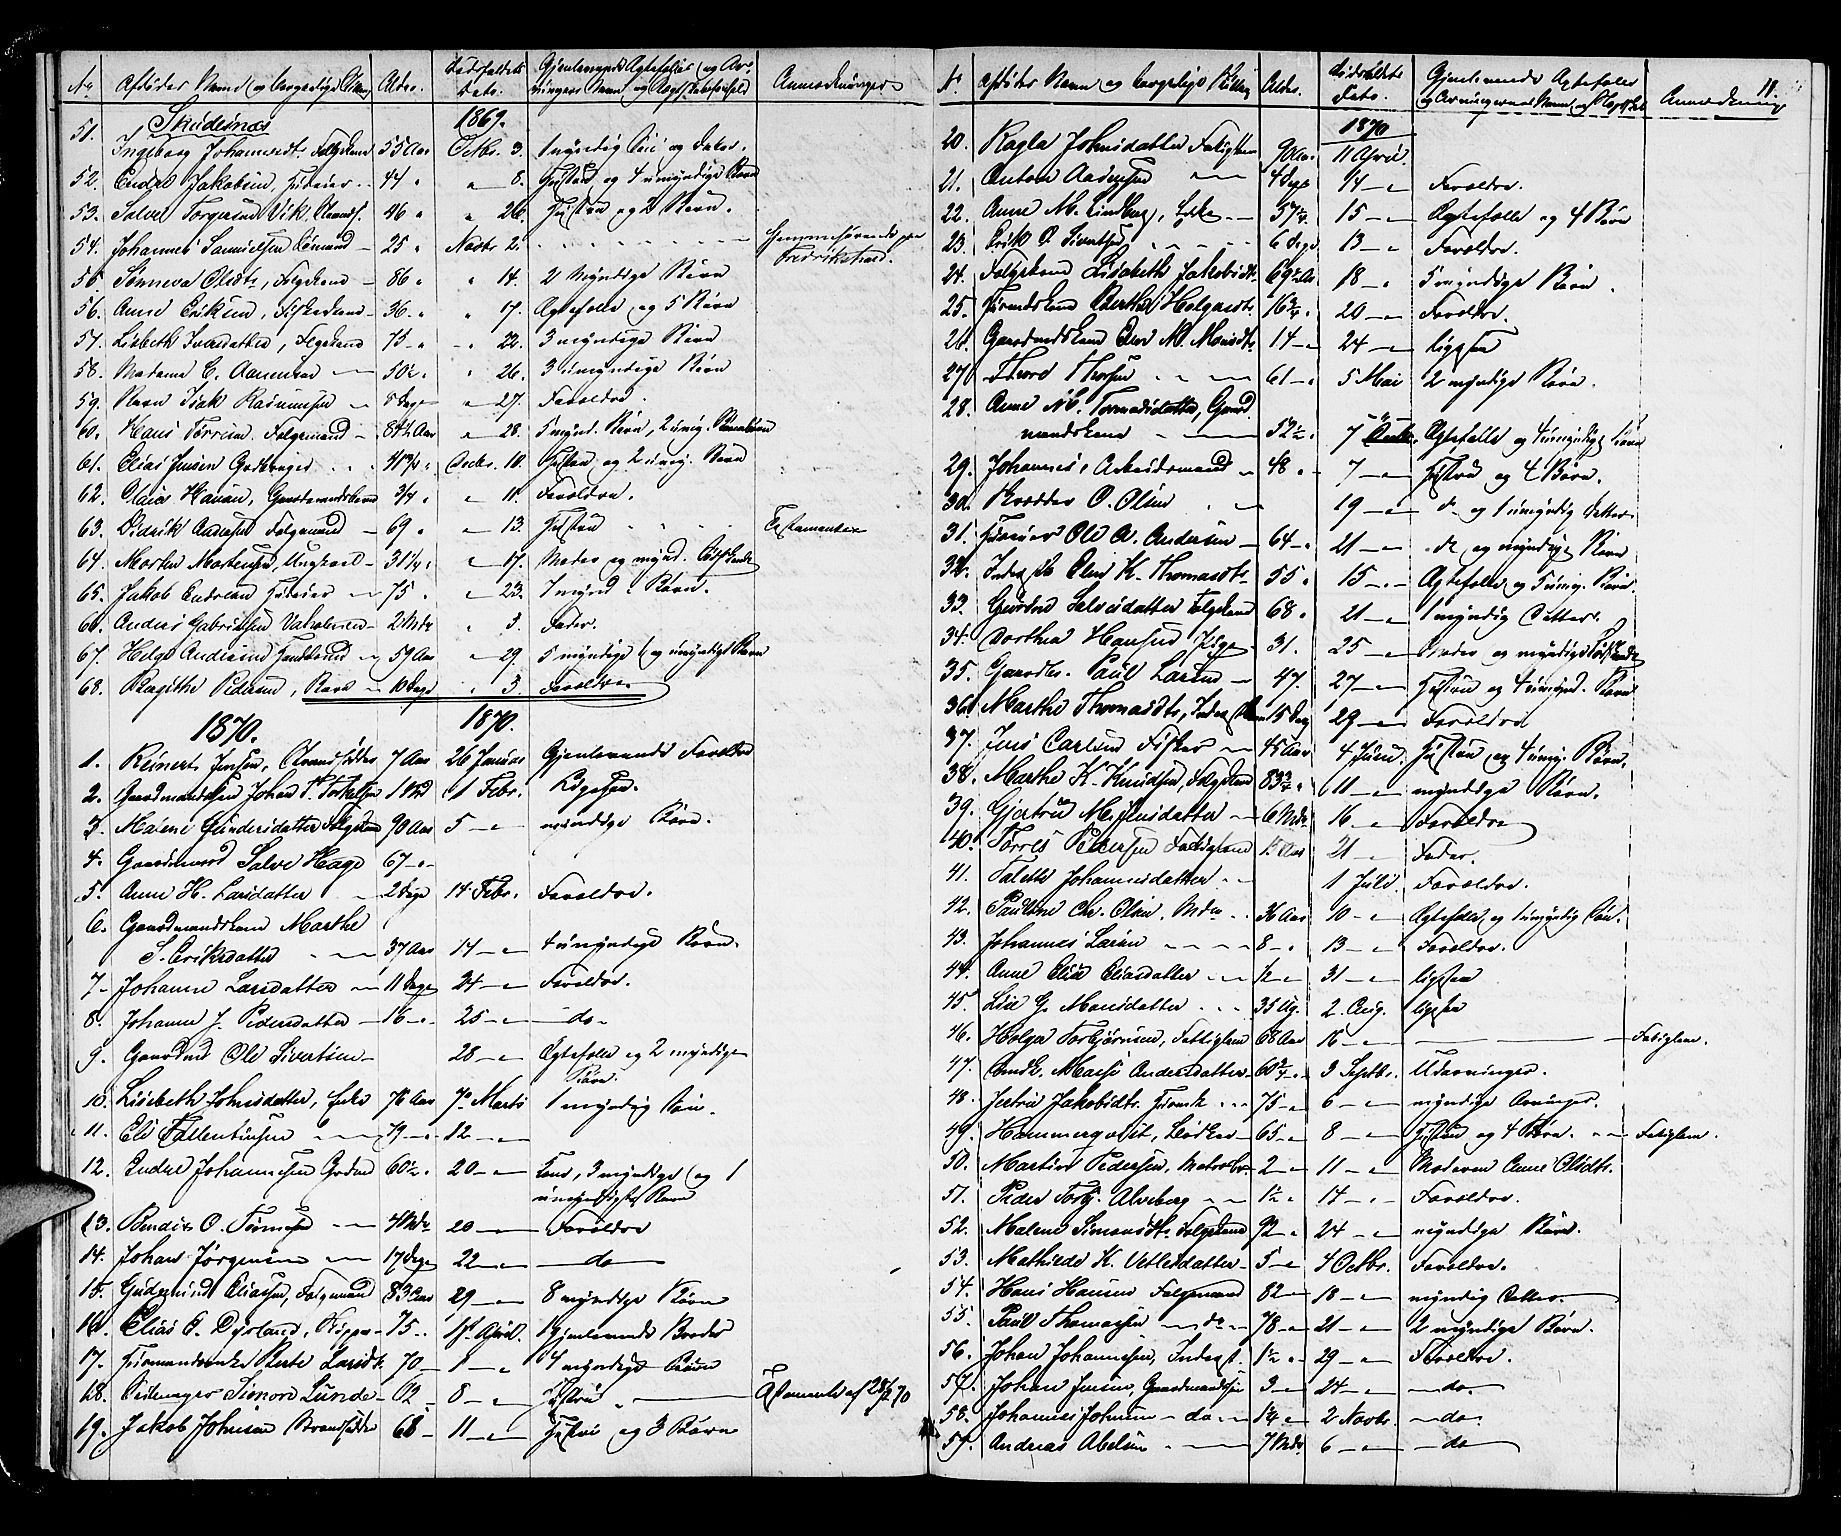 No. Afdødes Navn og borgerlige Stilling Alder. Dødsfaldets Dato. Gjenlevende Ægtefælles og Arvingers Navn og Opholdssted Anmærkninger
Skudesnæs 1869.
51. Ingeborg Johannesdtr. Folgekone 55 Aar Octbr. 3. 1 myndig Søn og Datter.
52. Endre Jakobsen, Huseier 44 " " 8. Hustru og 4 umyndige Børn
53. Salve Torgersen Vik, Strands. 46 " " 26. Hustru og 2 Børn.
54. Johannes Samuelsen Sømand 25 " Novbr. 2. Hjemmehørende paa Fredrikstad.
55. Sønneva Olsdtr, Folgekone 86 " " 14. 2 myndige Børn
56. Anne Eriksen, Fiskerkone 36 " " 17. Ægtefælle og 5 Børn
57. Lisbeth Iversdatter, Folgekone 75 " 22. 3 myndige Børn
58. Madame C. Aanensen 50½ " " 26. 3 umyndige Børn
59. Barn Isak Rasmussen 5 Dage " 27. Forældre.
60. Hans Tørresen Folgemand 84½ Aar " 28. 5 mynd. Børn, 2 umy. Børnebørn
61. Elias Jensen Gaardbruger 41¾ " Decbr. 10. Hustru og 2 umy. Børn
62. Claus Hansen, Gaardmandsbarn ¾ " " 11. Forældre.
63. Didrik Aadnesen Folgemand 69 " " 13. Hustru Testamenter
64. Morten Mortensen, Ungkarl 31¼ " " 17. Moder og mynd. Sødskende
65. Jakob Endresen Huseier 75 " " 23. 1 mynd. Børn.
66. Anders Gabrielsen Vandøen 2 Mdr " 3. Fader.
67. Helge Andersen 59 Aar " 29. 5 myndige og umyndige Børn
68. Bergithe Pedersen, Barn 10 Dage " 3. Forældre
1870. 1870.
1. Reinert Jensen, Strandsidder 7 Aar 26 Januar Gjenlevende Forældre
2. Gaardmandssøn Johan T. Torkelsen 1 Md 1 Febr. Ligesaa.
3. Malene Gundersdatter Folgekone 90 Aar 5 — " myndige Børn.
4. Gaardmand Salve Hage 67 — "
5. Anne H. Larsdatter 2 Dage 14 Febr. Forældre.
6. Gaardmandskone Marthe
S. Eriksdatter 37 Aar 14 — " 4 umyndige Børn.
7. Johanne Larsdatter 11 Dage 24 — " Forældre.
8. Johanne J. Pedersdatter 16 — " 25 — " do
9. Gaardmd Ole Sivertsen 28 — " Ægtefælle og 2 myndige
Børn.
10. Lisebeth Johnsdatter, Enke 76 Aar 7de Marts 1 myndig Søn.
11. Eli Vallentinsen 79 — " 12 — "
12. Endre Johannesen 60½ " 20 — " Kone, 3 myndige og 1
umyndigt Barn
13. Bendix O. Tønnesen 4 Mdr 20 — " Forældre
14. Johan Jørgensen 17 Dage 22 — " do
15. Gudmund Eliassen, Folgemand 83 Aar 29 — " 8 myndige Børn
16. Elias E. Dyrland, Skipper 75 — " 1st April. Gjenlevende Broder
17. Huusmandsenke Berte Larsdtr 70 — 1 — " 4 myndige Børn
18. Simon Lunde 62 8 — " Hustru Testamente af
19. Jakob Johnsen Strandsidder 68 — 11 — " Hustru og 3 Børn
No. Afdødes Navn og borgerlige Stilling Alder. Dødsfaldets Dato. Gjenlevende Ægtefælles og Arvingernes Navn og Opholdssted Anmærkning 11.
1870
20. Ragla Johnsdatter Fattiglem 90 Aar 11 April.
21. Anton Aadnesen 4 Dage 14 — " Forældre.
22. Anne M. Lindberg, Enke 57½ " 15 — " Ægtefælle og 4 Børn
23. Erik O. Sivertsen 6 Dage 13 — " Forældre.
24. Folgekone Lisabeth Jakobsdtr 69½ Aar 18 — " 5 myndige Børn.
25. Huusmandskone Berthe Helgesdtr 16¾ " 20 — " Forældre.
26. Gaardmandskone Elen M. Monsdtr 14 — " 24 — " ligesaa
27. Thore Thorsen 61 — " 5 Mai 2 myndige Børn.
28. Anne M. Tormodsdatter, Gaard
mandskone 52½ " 7 — Ægtefælle og 4 umyndige Børn
29. Johannes, Arbeidsmand 48 " 7 — " Hustru og 4 Børn.
30. O. Olsen 19 — " do og 1 umyndig Datter.
31. Huseier Ole A. Andersen 64 — " 21 — " do og myndige Børn
32. Elen K. Thomasdtr 55 " 15 — " Ægtefælle og 5 umy. Børn
33. Gurine Salvesdatter Folgekone 68 " 21 — " 1 myndig Datter.
34. Dorthea Hansen Pige 31. 25 — " Broder og myndige Sødskende
35. Gaardbr. Paul Larsen 47. 27 — " Hustru og 4 umynd. Børn
36. Marthe Thomasdtr, 15 Dag 29 — " Forældre
37. Jens Carlsen Fisker 45 Aar 4 Juni. Hustru og 4 umy. Børn.
38. Marthe K. Knudsen, Folgekone 83¾ " 11 — " myndige Børn.
39. Gjertrud M. Jensdatter 6 Mdr 16 — " Forældre
40. Tørres Pedersen Fattiglem 12 Aar 21 — " Fader.
41. Talette Johannesdatter 1 Juli. Forældre.
42. Pauline Chr. Olsen, Mdm 36 Aar 10 — " Ægtefælle og 1 umyndig Søn.
43. Johannes Larsen 8 — " 13 — " Forældre.
44. Anne Elise Eliasdatter ½ — " 31 — " ligesaa
45. Lise G. Monsdatter 35 Ug. 2. Aug. ligesaa
46. Holga Torbjørnsen, Fattiglem 68 Aar 16 — " Fattiglem.
47. Marthe Andersdatter 60¾ " 3 Septbr. Udarvinger.
48. Jertrud Jakobsdtr. 75 — " 6 — " myndige Arvinger.
49. Hammerqvist, Bødker 65 — " 8 — " Hustru og 4 Børn. Fattiglem.
50. Martin Pedersen, Matros 2 — " 11 — " Moderen Anne Olsdtr.
51. Peder Torbj. Alveberg 1½ " 14 — " Forældre.
52. Malene Simonsdtr Folgekone 92 — " 24 — " myndige Børn.
53. Mathilde K. Vetlesdatter 5 — " 4 Octbr. Forældre.
54. Hans Hansen Folgemand 82 — 18 — " myndig Datter.
55. Paul Thomassen do 78 — " 21 — " 2 myndige Børn.
56. Johan Johannesen, Inders. 1½ " 29 — " Forældre.
57. Johan Jensen, Gaardmandssøn 3 — " 24 — " do
58. Johannes Johnsen do 1¼ " 2 Novbr. do.
59. Andreas Abelsen 7 Mdr 6 — " do